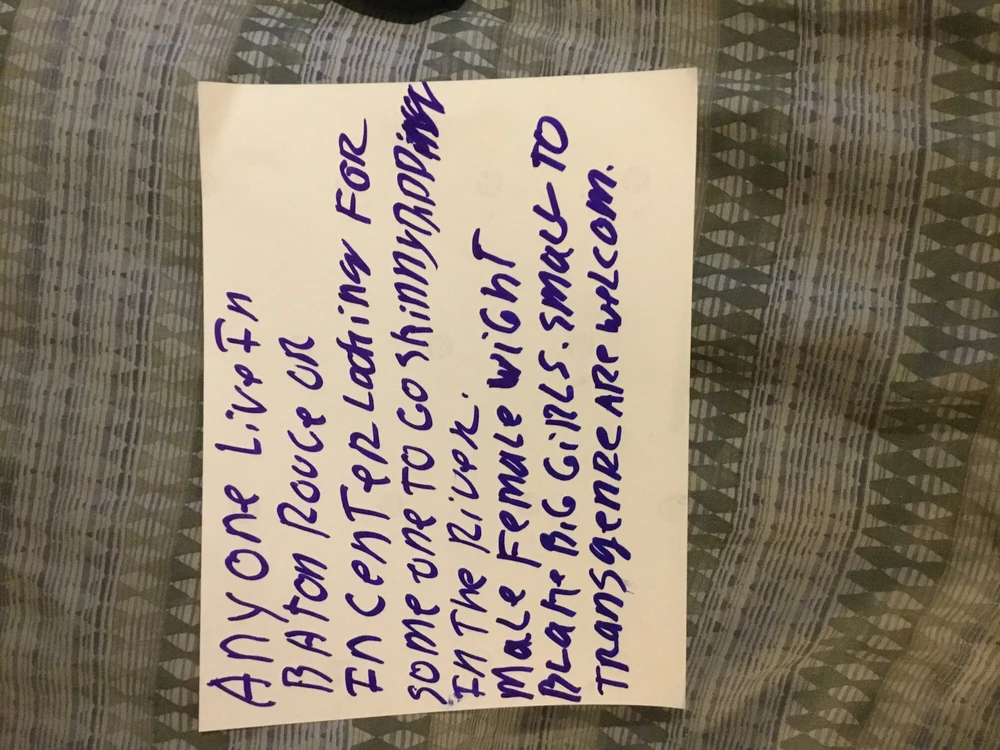 Any one Live In
BATon Rouge or
In CenTer Looking For
some one To Go shinnydipping
In The River.
Male Female wight
Blake BiG GiRLs. small To
TRANSgenRe ARe welcom.